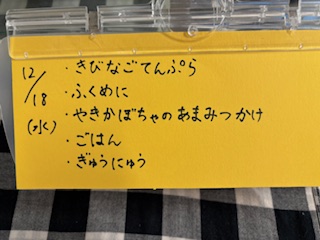 12/18(水)
・きびなごてんぷら
・ふくめに
・やきかぼちゃのあまみつかけ
・ごはん
・ぎゅうにゅう